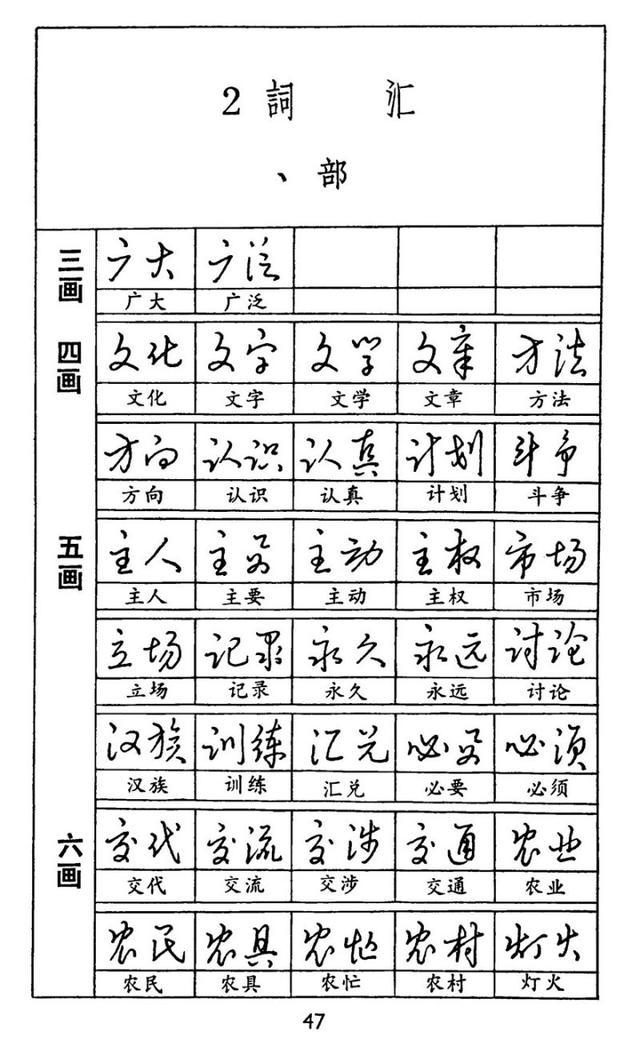 2 詞 汇
丶 部
三画
广大 广泛
广大 广泛
四画
文化 文字 文学 文章 方法
文化 文字 文学 文章 方法
方向 认识 认真 计划 斗争
方向 认识 认真 计划 斗争
五画
主人 主要 主动 主权 市场
主人 主要 主动 主权 市场
立场 记录 永久 永远 讨论
立场 记录 永久 永远 讨论
汉族 训练 汇兑 必要 必须
汉族 训练 汇兑 必要 必须
六画
交代 交流 交涉 交通 农业
交代 交流 交涉 交通 农业
农民 农具 农忙 农村 灯火
农民 农具 农忙 农村 灯火
47